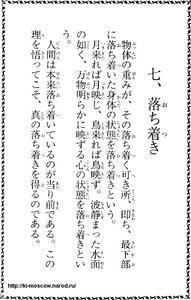 七、落ち着き
物体の重みが、その落ち着く可き所、即ち、最下部
に落ち着いた身体の状態を落ち着きという。
月来れば月映じ、鳥来れば鳥映ず。波静まった水面
の如く、万物明らかに映ずる心の状態を落ち着きとい
う。
人間は本来落ち着いているのが当り前である。この
理を悟ってこそ、真の落ち着きを得るのである。
http://ki-moscow.narod.ru/